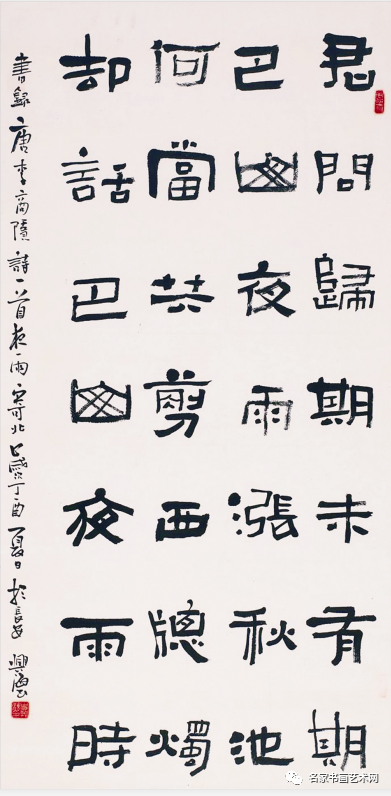 君問歸期未有期
巴山夜雨漲秋池
何當共剪西牕燭
却話巴山夜雨時
書録唐李商隱詩一首夜雨寄北歲丁酉夏日於長安興海
名家书画艺术网